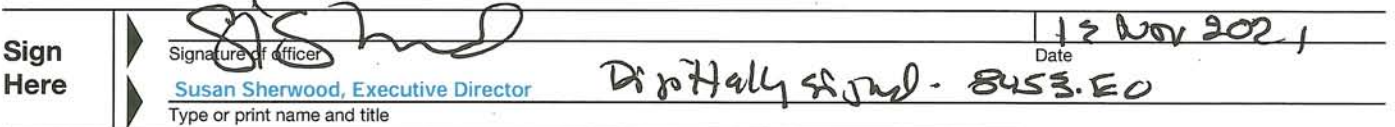 Sign Here
Signature of officer
12 Nov 2021
Date
Susan Sherwood, Executive Director
Digitally signed - 8453.EO
Type or print name and title